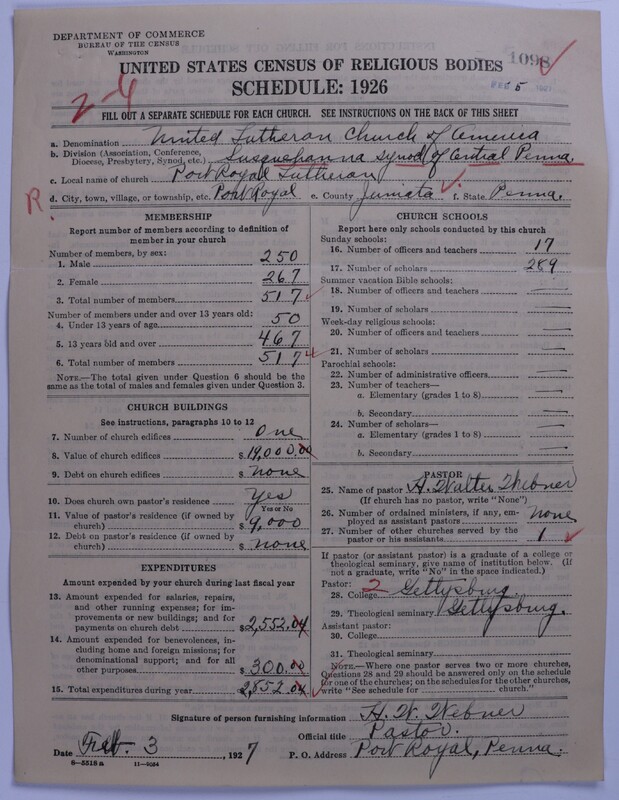 DEPARTMENT OF COMMERCE
BUREAU OF THE CENSUS
WASHINGTON
1098
FEB 5 1927
UNITED STATES CENSUS OF RELIGIOUS BODIES
SCHEDULE: 1926
2-4
FILL OUT A SEPARATE SCHEDULE FOR EACH CHURCH. SEE INSTRUCTIONS ON THE BACK OF THIS SHEET
a. Denomination United Lutheran Church of America
b. Division (Association, Conference, Diocese, Presbytery, Synod, etc.) Susquehanna Synod of Central Penna.
c. Local name of church Port Royal Lutheran
R. d. City, town, village, or township, etc. Port Royal e. County Juniata f. State Penna.
MEMBERSHIP
Report number of members according to definition of member in your church
Number of members, by sex:
1. Male 250
2. Female 267
3. Total number of members 517
Number of members under and over 13 years old:
4. Under 13 years of age 50
5. 13 years old and over 467
6. Total number of members 517
NOTE.—The total given under Question 6 should be the same as the total of males and females given under Question 3.
CHURCH BUILDINGS
See instructions, paragraphs 10 to 12
7. Number of church edifices One
8. Value of church edifices $ 19,000.00
9. Debt on church edifices $ none
10. Does church own pastor's residence Yes
Yes or No
11. Value of pastor's residence (if owned by church) $ 9,000
12. Debt on pastor's residence (if owned by church) $ none
EXPENDITURES
Amount expended by your church during last fiscal year
13. Amount expended for salaries, repairs, and other running expenses; for improvements or new buildings; and for payments on church debt $ 2,552.04
14. Amount expended for benevolences, including home and foreign missions; for denominational support; and for all other purposes $ 300.00
15. Total expenditures during year $ 2,852.04
CHURCH SCHOOLS
Report here only schools conducted by this church
Sunday schools:
16. Number of officers and teachers 17
17. Number of scholars 289
Summer vacation Bible schools:
18. Number of officers and teachers —
19. Number of scholars —
Week-day religious schools:
20. Number of officers and teachers —
21. Number of scholars —
Parochial schools:
22. Number of administrative officers —
23. Number of teachers—
a. Elementary (grades 1 to 8) —
b. Secondary —
24. Number of scholars—
a. Elementary (grades 1 to 8) —
b. Secondary —
PASTOR
25. Name of pastor H. Walter Webner
(If church has no pastor, write "None")
26. Number of ordained ministers, if any, employed as assistant pastors none
27. Number of other churches served by the pastor or his assistants 1
If pastor (or assistant pastor) is a graduate of a college or theological seminary, give name of institution below. (If not a graduate, write "No" in the space indicated.)
Pastor: 2
28. College Gettysburg.
29. Theological seminary Gettysburg.
Assistant pastor:
30. College
31. Theological seminary
NOTE.—Where one pastor serves two or more churches, Questions 28 and 29 should be answered only on the schedule for one of the churches; on the schedules for the other churches, write "See schedule for church."
Signature of person furnishing information H. W. Webner
Official title Pastor.
Date Feb. 3, 1927 P. O. Address Port Royal, Penna.
8—5518 a 11—9024